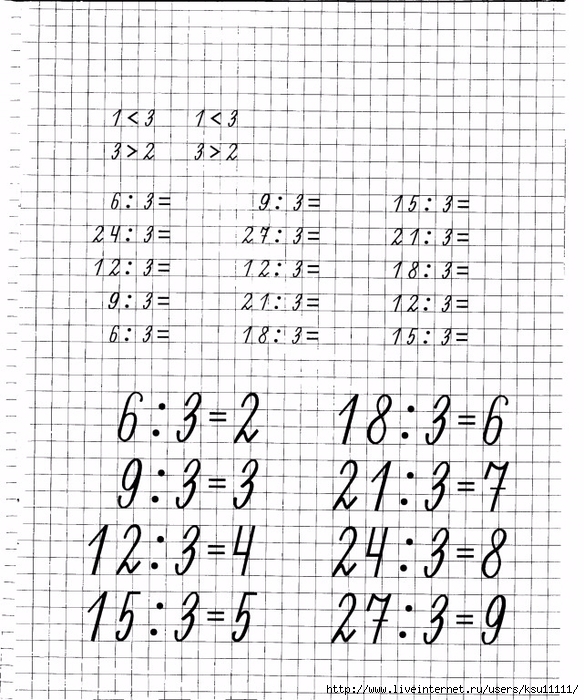 1 < 3 1 < 3
3 > 2 3 > 2
6 : 3 = 9 : 3 = 15 : 3 =
24 : 3 = 27 : 3 = 21 : 3 =
12 : 3 = 12 : 3 = 18 : 3 =
9 : 3 = 21 : 3 = 12 : 3 =
6 : 3 = 18 : 3 = 15 : 3 =
6 : 3 = 2 18 : 3 = 6
9 : 3 = 3 21 : 3 = 7
12 : 3 = 4 24 : 3 = 8
15 : 3 = 5 27 : 3 = 9
http://www.liveinternet.ru/users/ksu11111/